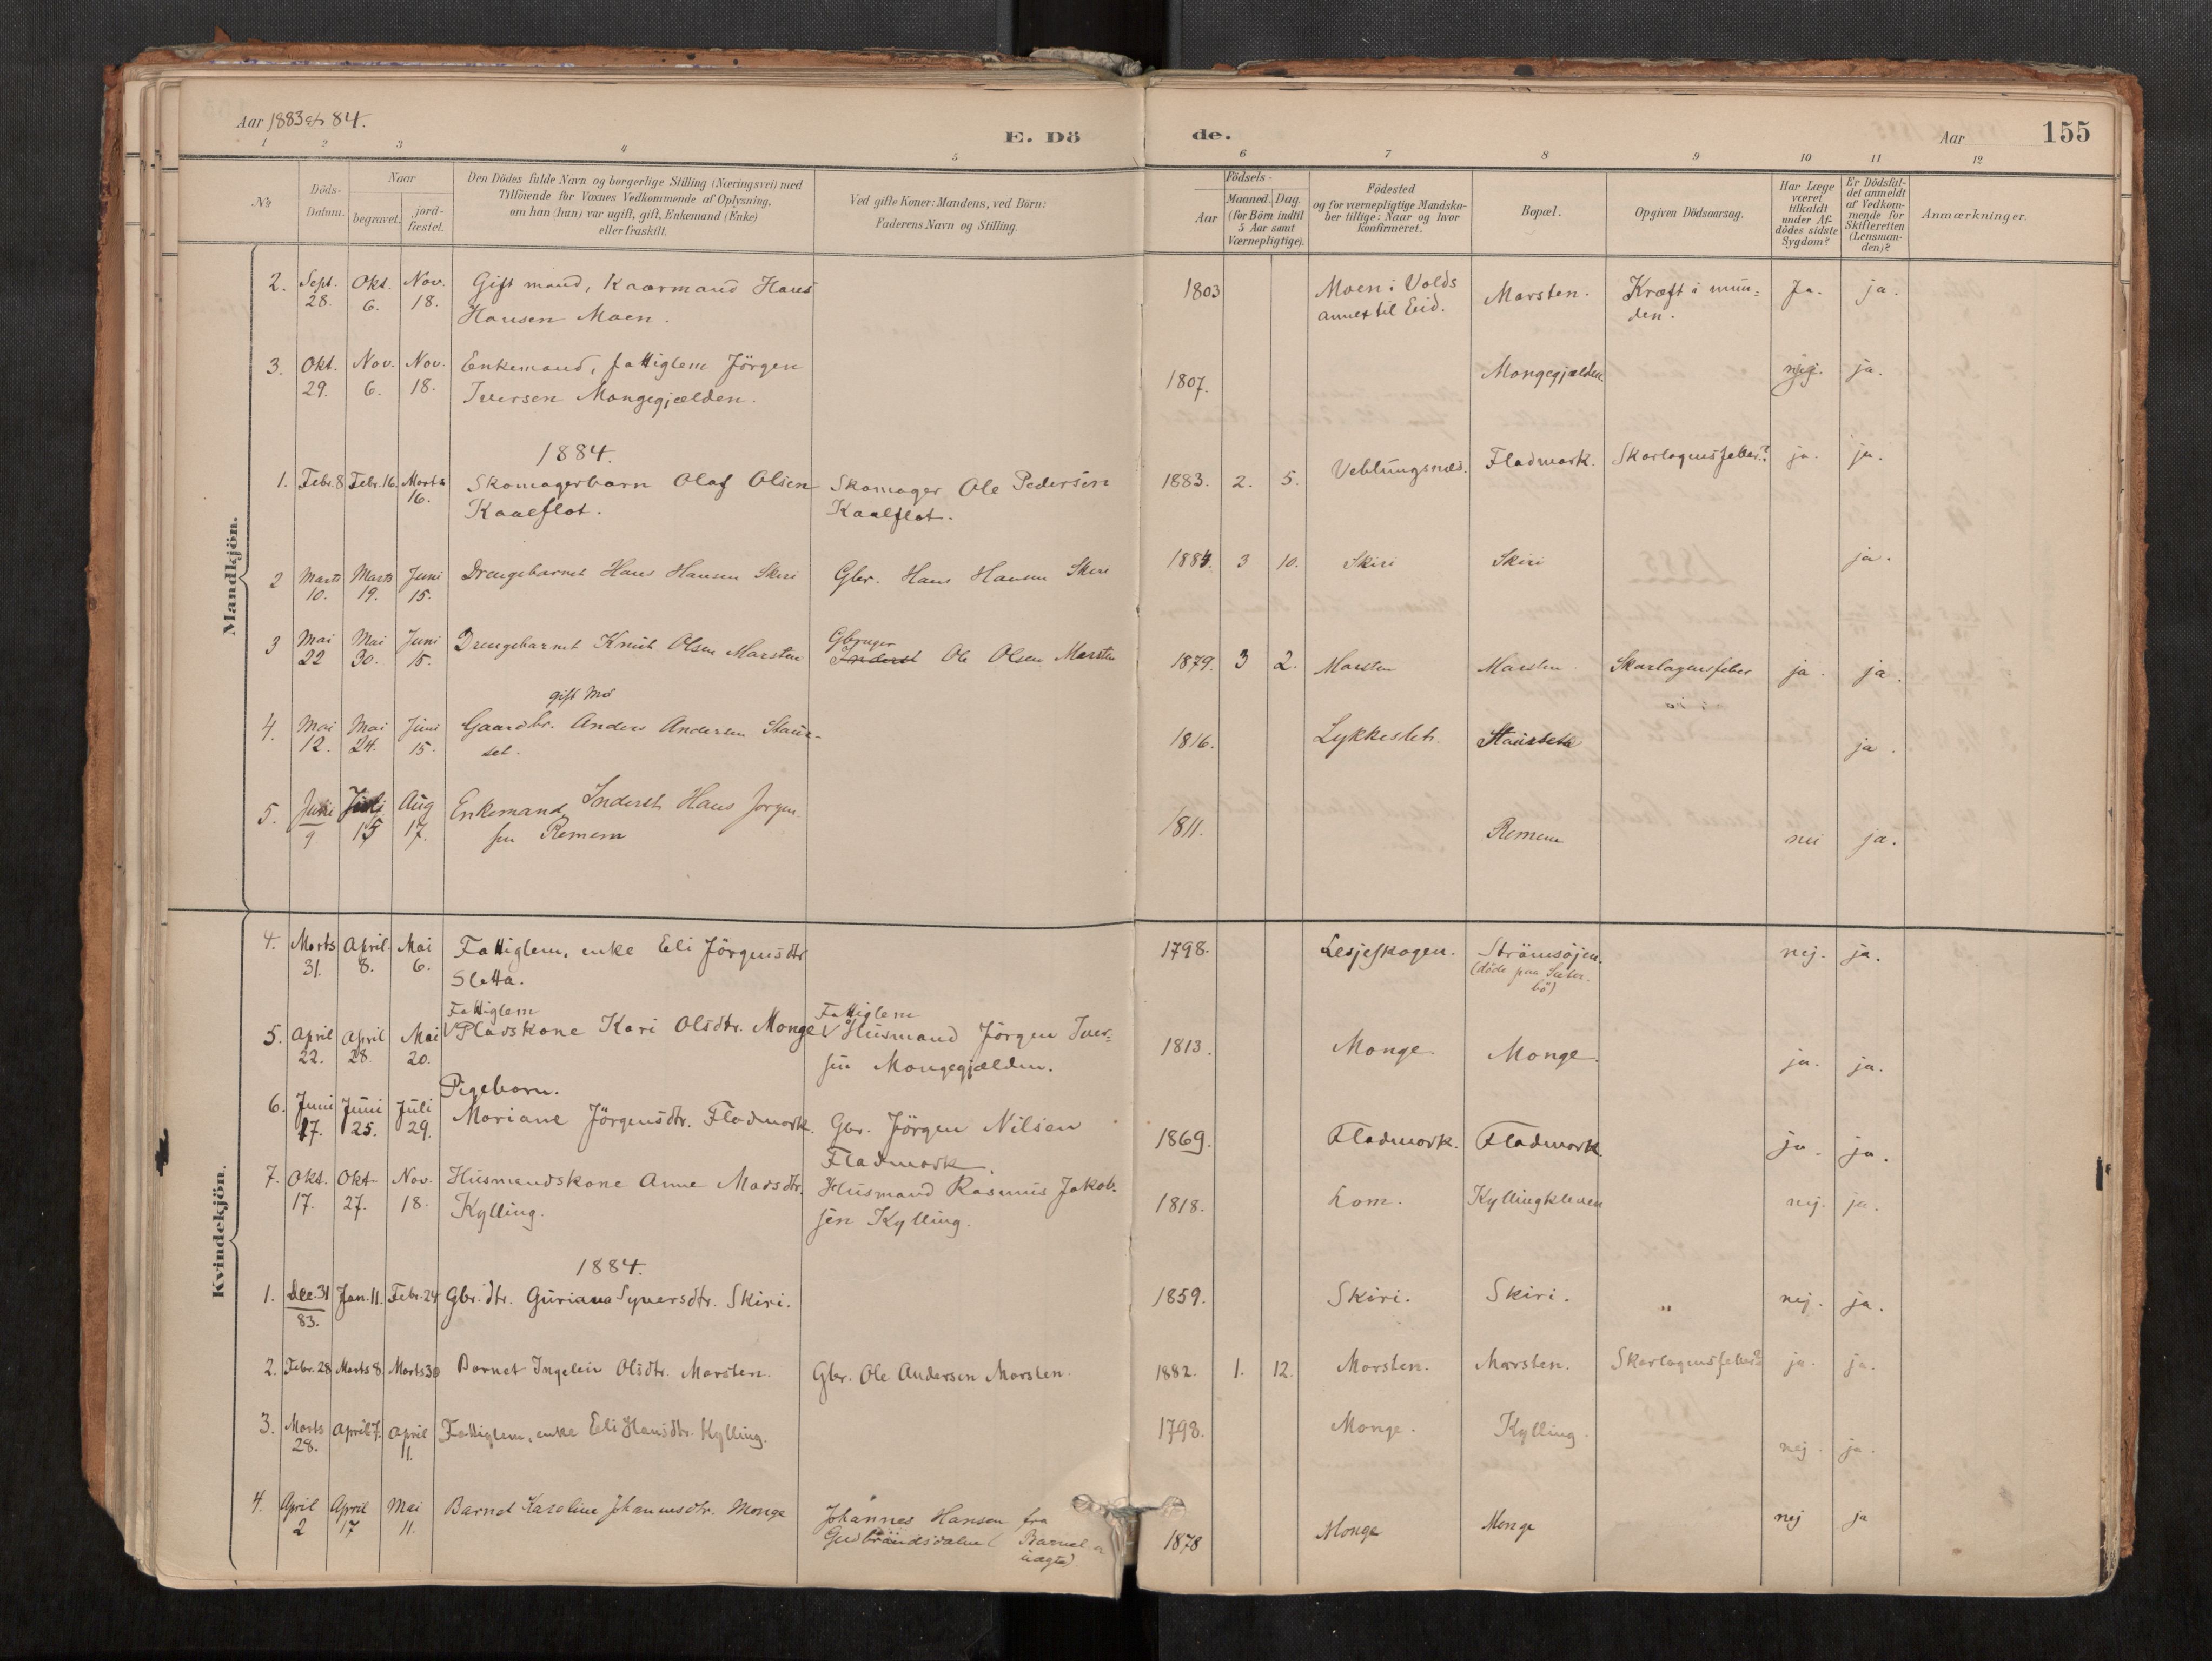 Aar 1883 & 84.
E. Dö de.
Aar 155
1 2 3 4 5 6 7 8 9 10 11 12
No
Döds-
Datum.
Naar
begravet.
jord-
fæstet.
Den Dödes fulde Navn og borgerlige Stilling (Næringsvei) med
Tilföiende for Voxnes Vedkommende af Oplysning,
om han (hun) var ugift, gift, Enkemand (Enke)
eller fraskilt.
Ved gifte Koner: Mandens, ved Börn:
Faderens Navn og Stilling.
Födsels-
Aar
Maaned. Dag.
(for Börn indtil
5 Aar samt
Værnepligtige).
Födested
og for værnepligtige Mandska-
ber tillige: Naar og hvor
konfirmeret.
Bopæl.
Opgiven Dödsaarsag.
Har Læge
været
tilkaldt
under Af-
dödes sidste
Sygdom?
Er Dödsfal-
det anmeldt
af Vedkom-
mende for
Skifteretten
(Lensman-
den)?
Anmærkninger.
Mandkjön.
2. Sept. 28. Okt. 6. Nov. 18. Gift mand, Kaarmand Hans
Hansen Moen. 1803 Moen i Volds
annex til Eid. Marsten. Kræft i mun-
den. Ja. ja.
3. Okt. 29. Nov. 6. Nov. 18. Enkemand, fattiglem Jörgen
Iversen Mongegjælden. 1807. Mongegjælden. nei. ja.
1884.
1. Febr. 8 Febr. 16. Marts 16. Skomagerbarn Olaf Olsen
Kaalflot. Skomager Ole Pedersen
Kaalflot. 1883. 2. 5. Veblungsnæs. Fladmark. Skarlagensfeber? ja. ja.
2 Marts 10. Marts 19. Juni 15. Drengebarnet Hans Hansen Skiri Gbr. Hans Hansen Skiri 1884. 3 10. Skiri Skiri ja.
3 Mai 22 Mai 30. Juni 15. Drengebarnet Knut Olsen Marsten Gbruger
Inderst Ole Olsen Marsten 1879. 3 2. Marsten Marsten Skarlagensfeber ja. ja.
gift Md
4. Mai 12. Mai 24. Juni 15. Gaardbr. Anders Andersen Staur-
set. 1816. Lykkeslet. Staurset ja.
5. Juni 9 Juli 15 Aug 17. Enkemand, Inderst Hans Jorgen-
sen Remem 1811. Remem nei ja.
Kvindekjön.
4. Marts 31. April 8. Mai 6. Fattiglem, enke Eli Jörgensdtr
Sletta. 1798. Lesjeskogen. Strömsöjen.
(döde paa Sæter-
bö) nej. ja.
5. April 22. April 28. Mai 20. Fattiglem
Pladskone Kari Olsdtr. Monge Fattiglem
Husmand Jörgen Iver-
sen Mongegjælden. 1813. Monge. Monge. ja. ja.
Pigebarn.
6. Juni 17. Juni 25. Juli 29. Mariane Jörgensdtr. Fladmark. Gbr. Jörgen Nilsen
Fladmark. 1869. Fladmark. Fladmark. ja. ja.
7. Okt. 17. Okt. 27. Nov. 18. Husmandskone Anne Madsdtr.
Kylling. Husmand Rasmus Jakob-
sen Kylling. 1818. Lom. Kyllingkleven nej. ja.
1884.
1. Dec. 31 83. Jan. 11. Febr. 24 Gbr. dtr. Guriana Syversdtr. Skiri. 1859. Skiri. Skiri. " nej. ja.
2. Febr. 28 Marts 8. Marts 30 Barnet Ingelin Olsdtr. Marsten. Gbr. Ole Andersen Marsten. 1882. 1. 12. Marsten. Marsten. Skarlagensfeber? ja. ja.
3. Marts 28. April 7. April 11. Fattiglem, enke Eli Hansdtr. Kylling. 1798. Monge. Kylling. nej. ja.
4. April 2 April 17 Mai 11. Barnet Karoline Johannesdtr. Monge Johannes Hansen fra
Gudbrandsdalen (Barnet er
uægte). 1878 Monge Monge nej ja